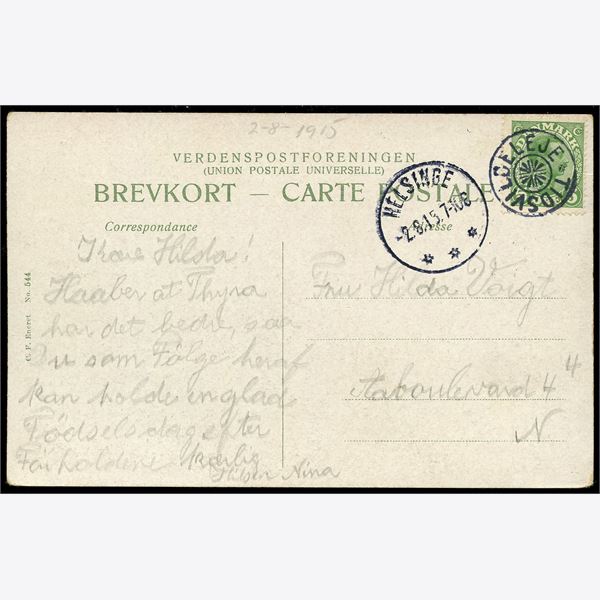 2-8-1915
VERDENSPOSTFORENINGEN
(UNION POSTALE UNIVERSELLE)
BREVKORT — CARTE POSTALE
DANMARK
TIDSVILDELEJE
HELSINGE
2.8.15.7-10E
Correspondance
Adresse
Kære Hilda!
Haaber at Thyra
har det bedre, saa
Du som Følge heraf
kan holde en glad
Fødselsdag efter
Forholdene kærlig
Hilsen Nina
Fru Hilda Voigt
Aaboulevard 4 4
N
C. F. Eneret No. 544